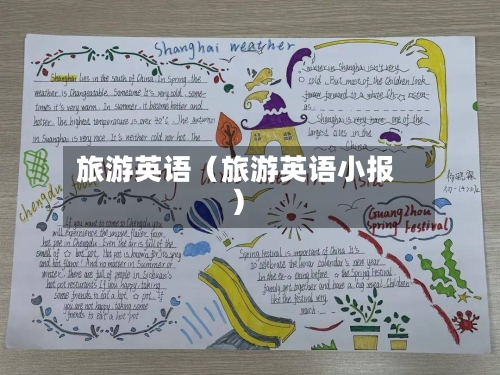 Shanghai weather
Shanghai lies in the south of China. In spring, the
weather is changeable. Sometime it's very cold, some-
times it's very warm. In summer, it become hotter and
hotter. The highest temperature is over 40°C. The autumn
in Shanghai is very nice. It's neither cold nor hot. The
winter in Shanghai isn't very
cold. But most of the children look
forward to a white
as.
Shanghai is very one of the
largest cities in the
China
旅游英语（旅游英语小报
）
chengdu
If you want to come to Chengdu, you will
experience the unique flavor from
hot pot in Chengdu. Even the air is full of the
smell of hot pot. Hot pot is known for its spicy
and hot flavor. And no matter in Summer or
winter, there are full of people in Sichuan's
hot pot restaurants if you happy, taking
some friends to eat a hot pot. If
you are not happy, taking some
friends to eat a hot pot
Guangzhou
Spring Festival
Spring Festival is important of China. It's
to celebrate the lunar calendar's new year.
In the evening before the Spring Festival,
family get together and have a big meal. Children
like the festival very
much